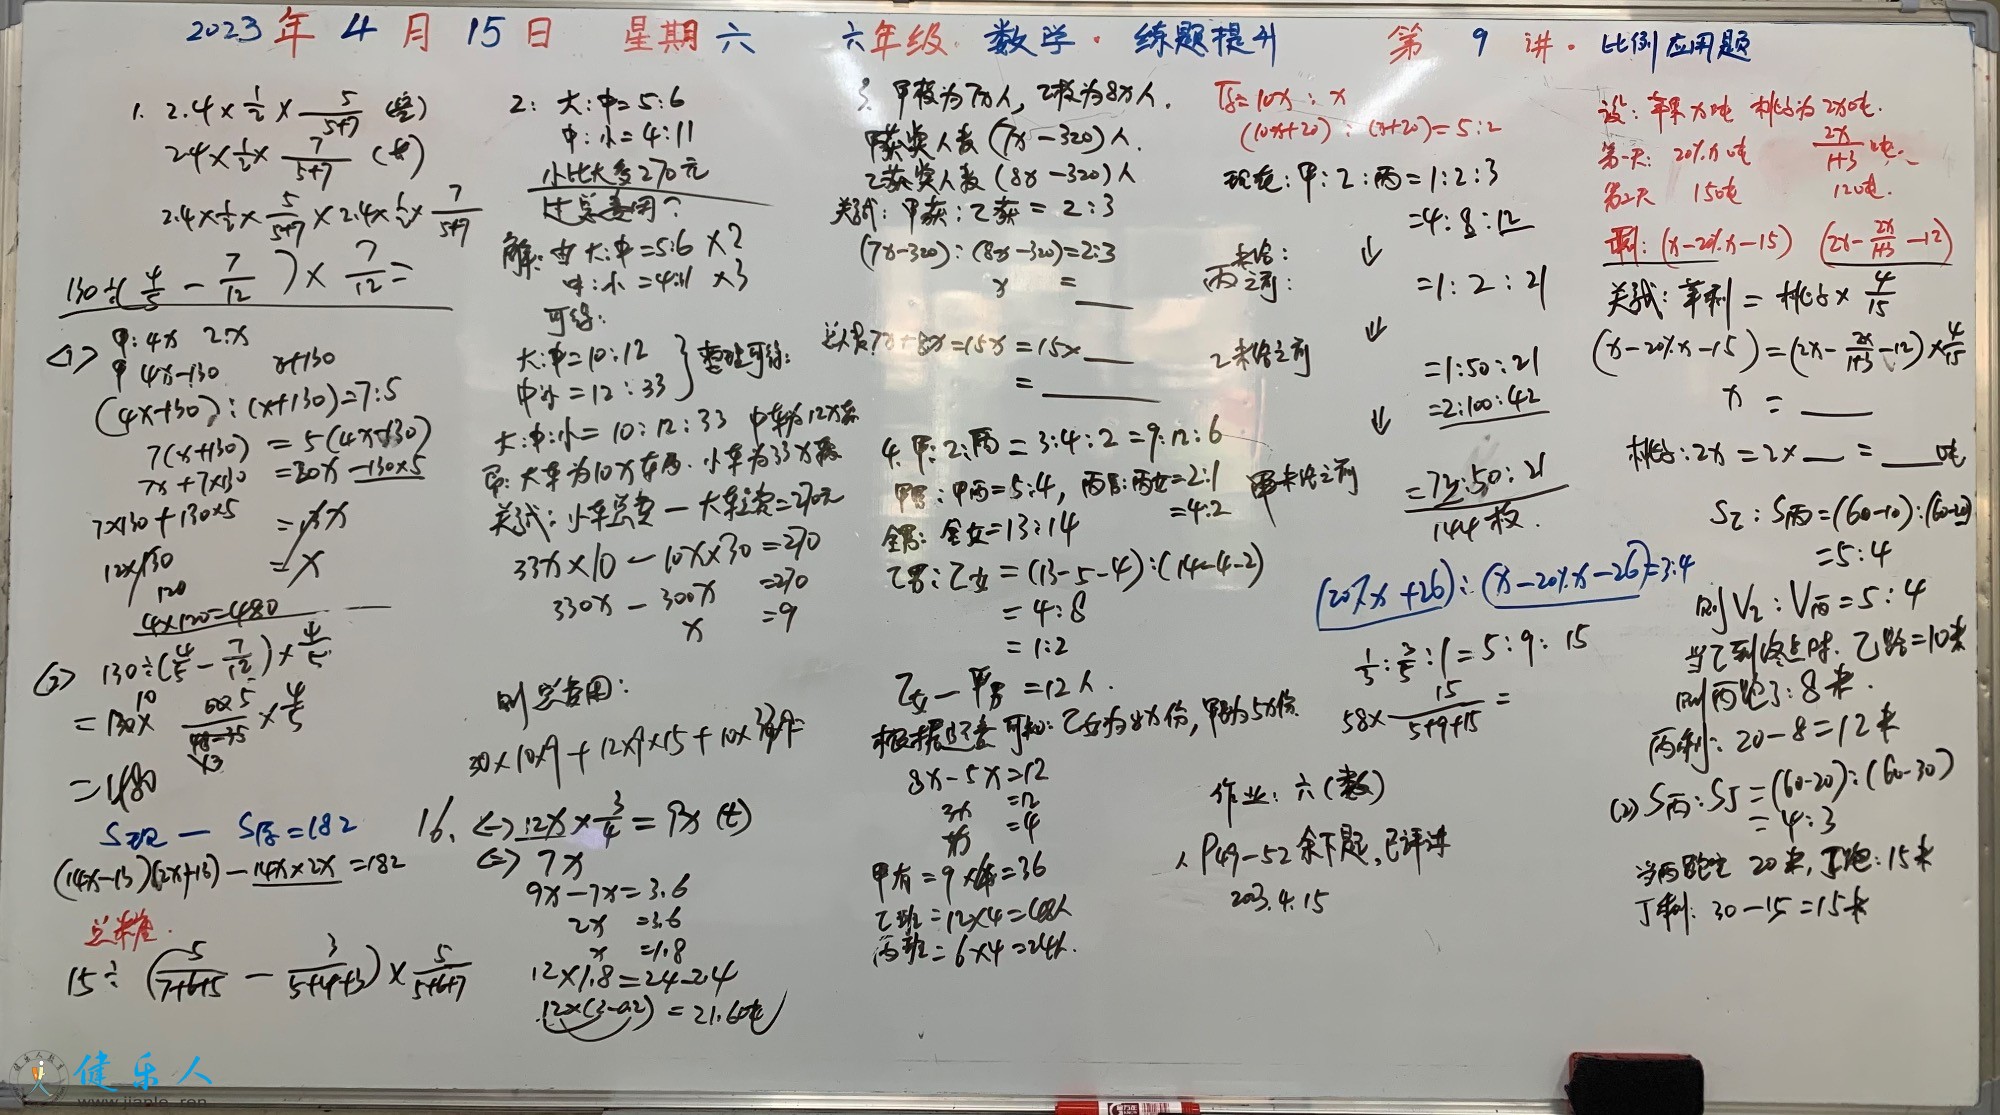 2023年4月15日 星期六 六年级·数学·练题提升 第9讲·比例应用题
1. 2.4×1/2×5/(5+7) (宽)
2.4×1/2×7/(5+7) (长)
2.4×1/2×5/(5+7)×2.4×1/2×7/(5+7)
130÷(4/5-7/12)×7/12=
<1> 甲:4x 乙:x
甲 4x-130 x+130
(4x-130):(x+130)=7:5
7(x+130)=5(4x-130)
7x+7×130=20x-130×5
7×130+130×5=13x
12×130=x
120
4×120=480
<2> 130÷(4/5-7/12)×4/5
=480
S现-S原=182
(14x-13)(2x+13)-14x×2x=182
总米程.
15÷(5/(7+6+5)-3/(5+4+3))×5/(5+6+7)
2: 大:中=5:6
中:小=4:11
小比大多270元
过总费用?
解:由大:中=5:6 ×2
中:小=4:11 ×3
可得:
大:中=10:12
中:小=12:33 }整理可得:
大:中:小=10:12:33 中车为12x辆
大车为10x辆.小车为33x辆
关试:小车总费-大车总费=270元
33x×10-10x×30=270
330x-300x=270
x=9
则总费用:
30×10×9+12×9×15+10×33×9
16. <1> 12x×3/4=9x(t)
<2> 7x
9x-7x=3.6
2x=3.6
x=1.8
12×1.8=24-2.4
12×(2-0.2)=21.6吨
3. 甲校为7x人,乙校为8x人.
甲获奖人数(7x-320)人.
乙获奖人数(8x-320)人
关试:甲获:乙获=2:3
(7x-320):(8x-320)=2:3
x=___
总人数:7x+8x=15x=15×___
=___
4. 甲:乙:丙=3:4:2=9:12:6
甲男:甲女=5:4,丙男:丙女=2:1
=4:2
全男:全女=13:14
乙男:乙女=(13-5-4):(14-4-2)
=4:8
=1:2
乙女-甲男=12人.
根据题意可知:乙女为8x份,甲男为5x份
8x-5x=12
3x=12
x=4
甲有=9×4=36
乙班=12×4=48人
丙班=6×4=24人.
10x:x
(10x+20):(x+20)=5:2
现在:甲:乙:丙=1:2:3
=4:8:12
↓
丙未给之前:
=1:2:21
↓
乙未给之前
=1:50:21
=2:100:42
↓
甲未给之前
=73:50:21
144枚.
(20%x+26):(x-20%x-26)=3:4
1/3:3/5:1=5:9:15
58×15/(5+9+15)=
作业:六(数)
1. P49-52余下题,已评讲
2023.4.15
设:苹果x吨 桃子为2x吨.
第一天:20%x吨 2x/(1+3)吨.
第二天 15吨 12吨.
剩:(x-20%x-15) (2x-2x/(1+3)-12)
关试:苹剩=桃子×4/15
(x-20%x-15)=(2x-2x/(1+3)-12)×4/15
x=___
桃子:2x=2×___=___吨
S乙:S丙=(60-10):(60-20)
=5:4
则V乙:V丙=5:4
当乙到终点时.乙路=10米
则丙跑了:8米.
丙剩:20-8=12米
(2) S丙:S丁=(60-20):(60-30)
=4:3
当丙跑完20米,丁跑:15米
丁剩:30-15=15米
健乐人
www.jianle.ren